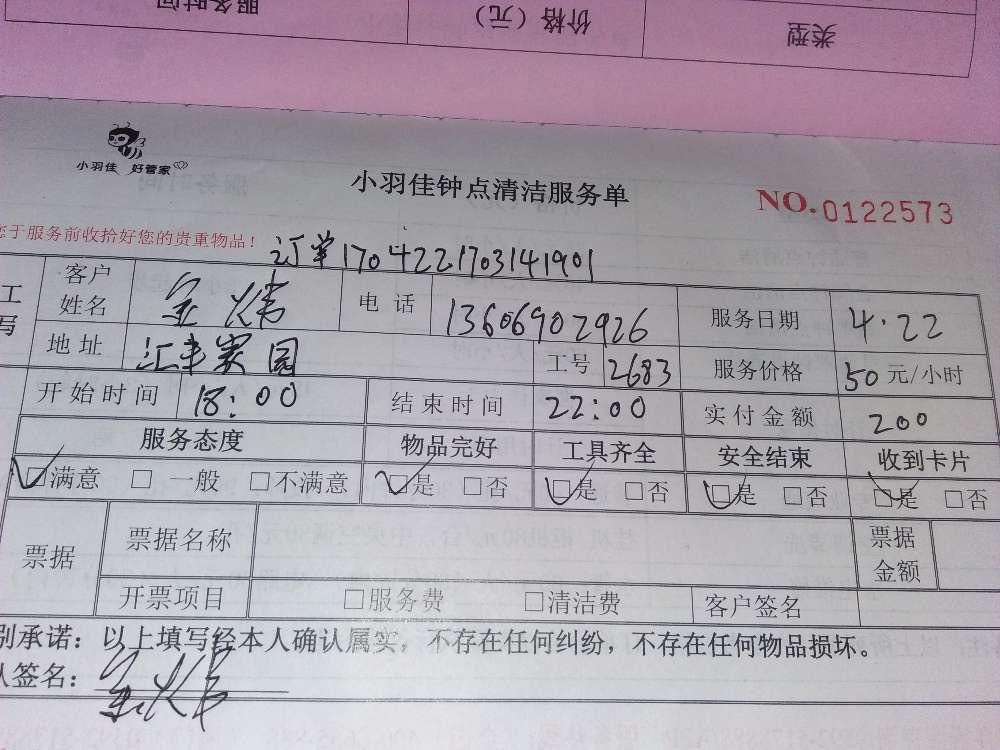 服务时间 价格（元） 类型
小羽佳 好管家
小羽佳钟点清洁服务单
NO.0122573
您于服务前收拾好您的贵重物品！
订单170422170314190１
工 客户姓名 电话 13606902926 服务日期 4.22
写 地址 汇丰家园 工号 2683 服务价格 50元/小时
开始时间 18:00 结束时间 22:00 实付金额 200
服务态度 物品完好 工具齐全 安全结束 收到卡片
☑满意 □一般 □不满意 ☑是 □否 ☑是 □否 ☑是 □否 ☑是 □否
票据 票据名称 票据金额
开票项目 □服务费 □清洁费 客户签名
别承诺：以上填写经本人确认属实，不存在任何纠纷，不存在任何物品损坏。
人签名：